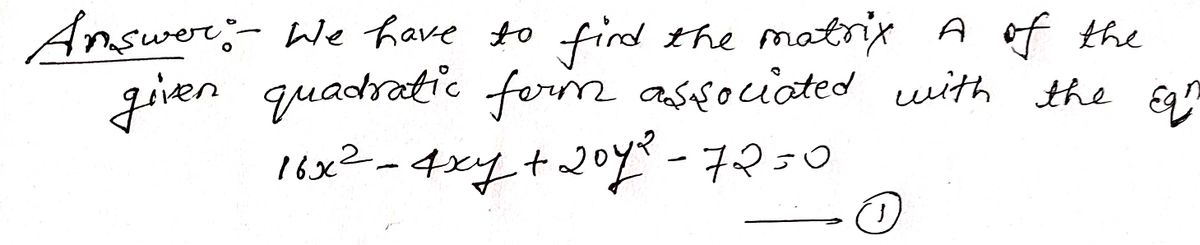 Answer:- We have to find the matrix A of the
given quadratic form associated with the Eqn
16x² - 4xy + 20y² - 72 = 0
①